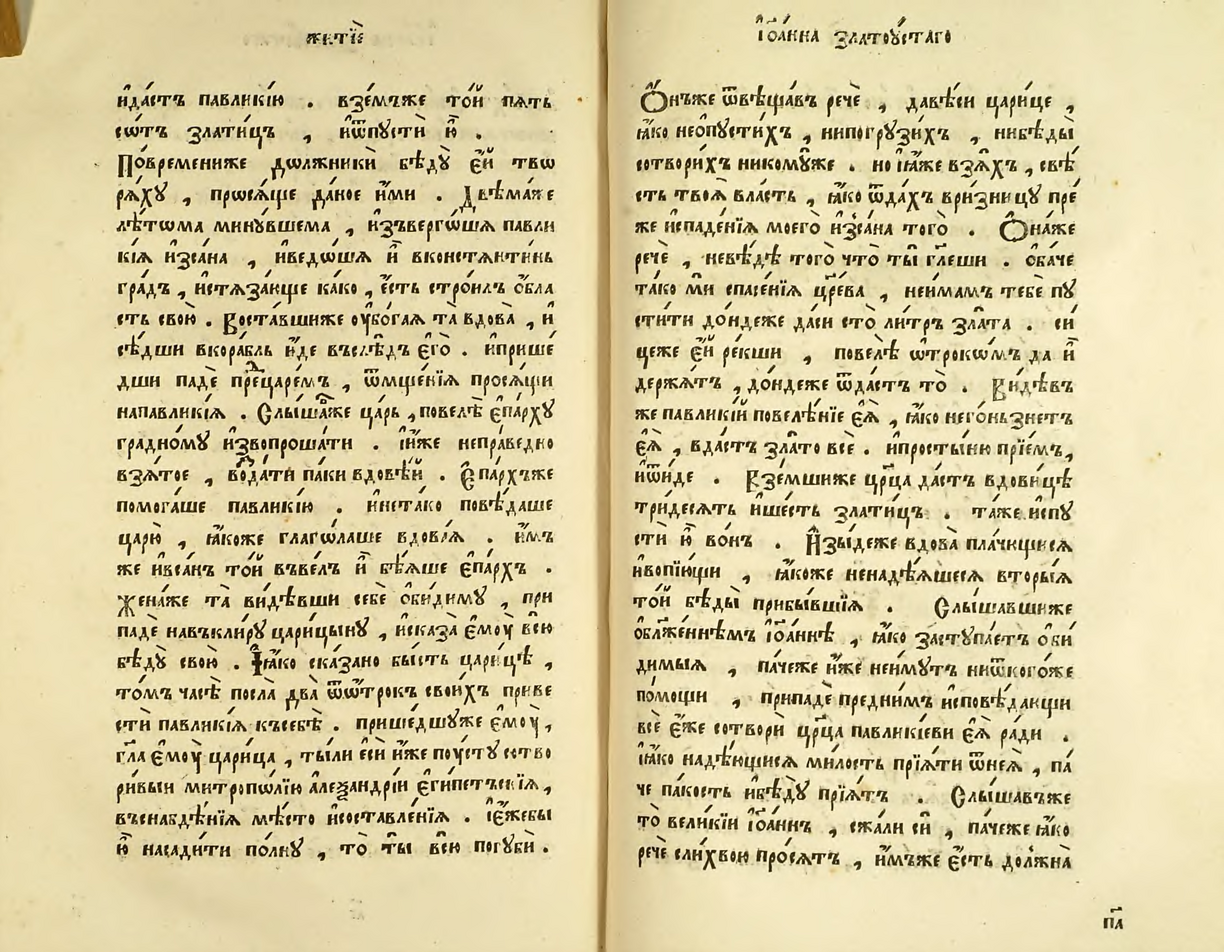 житїє
идастъ павликїю . вземъже той пѧть
сѡтъ златицъ , иѿпусти ю .
Повремениже должники бѣдꙋ ей твѡ
рѧхꙋ , просѧще даное ими . Двѣмаже
лѣтѡма минꙋвшема , изъвергѡша павли
кїа изсана , иведѡша и вконстѧнтинь
градъ , истѧзающе како , есть строилъ обла
сть свою . Воставшиже оубогаѧ та вдова , и
сѣдши вкорабль иде въслѣдъ его . иприше
дши паде прецаремъ , ѿмщенїѧ просѧщи
напавликїѧ . Слышаже царь , повелѣ епархꙋ
градномꙋ извопрошати . ииже неправедно
взѧтое , водати паки вдовѣй . Епархъже
помогаше павликїю . иинетако повѣдаше
царю , ꙗкоже глаголаше вдова . имъ
же ивсанъ той въвелъ и бѣѧше епархъ .
Женаже та видѣвши себе обидимꙋ , при
паде навъклирꙋ царицынꙋ , исказа емоу всю
бѣдꙋ свою . Ꙗко сказано бысть царицѣ ,
томъ часѣ посла два ѿотрокъ своихъ приве
сти павликїѧ късебѣ . пришедшꙋже емоу ,
гла емоу царица , тыли еси иже поустꙋ сотво
ривыи митрополїю алеѯандрїи египетъскїѧ ,
въснабдѣнїѧ мѣсто исоставленїѧ . іежебы
ю насадити полнꙋ , то ты всю погуби .
їоанна златоꙋстаго
Онъже ѿвѣщавъ рече , давѣси царице ,
ꙗко неопустихъ , нипогрузихъ , нибѣды
сотворихъ никомуже . но ꙗже взѧхъ , свѣ
сть твоѧ власть , ꙗко ѿдахъ вризницꙋ пре
же испаденїѧ моего изсана того . Онаже
рече , невѣдѣ того что ты глеши . обаче
тако ми спасенїѧ црева , неимамъ тебе пꙋ
стити дондеже даси сто литръ злата . си
цеже ей рекши , повелѣ ѡтрокѡмъ да и
держѧтъ , дондеже ѿдастъ то . Видѣвъ
же павликїй повелѣнїе еѧ , ꙗко негоньзнетъ
еѧ , вдастъ злато все . ипростыню прїемъ ,
иѿиде . Вземшиже црца дастъ вдовицѣ
тридесѧть ишесть златицъ . таже испꙋ
сти ю вонъ . Изыдеже вдова плачющисѧ
ивопїющи , ꙗкоже ненадѣѧшесѧ вторыѧ
той бѣды прибывшїѧ . Слышавшиже
облженнѣмъ їоаннѣ , ꙗко заступаетъ оби
димыѧ , пачеже иже неимутъ ниѿкогоже
помощи , припаде преднимъ исповѣдающи
все еже сотвори црца павликїеви еѧ ради .
ꙗко надѣющисѧ милость прїѧти ѿнеѧ , па
че пакость ибѣдꙋ прїѧтъ . Слышавъже
то великїи їоаннъ , сжали си , пачеже ꙗко
рече слихвою просѧтъ , имъже есть должна
па